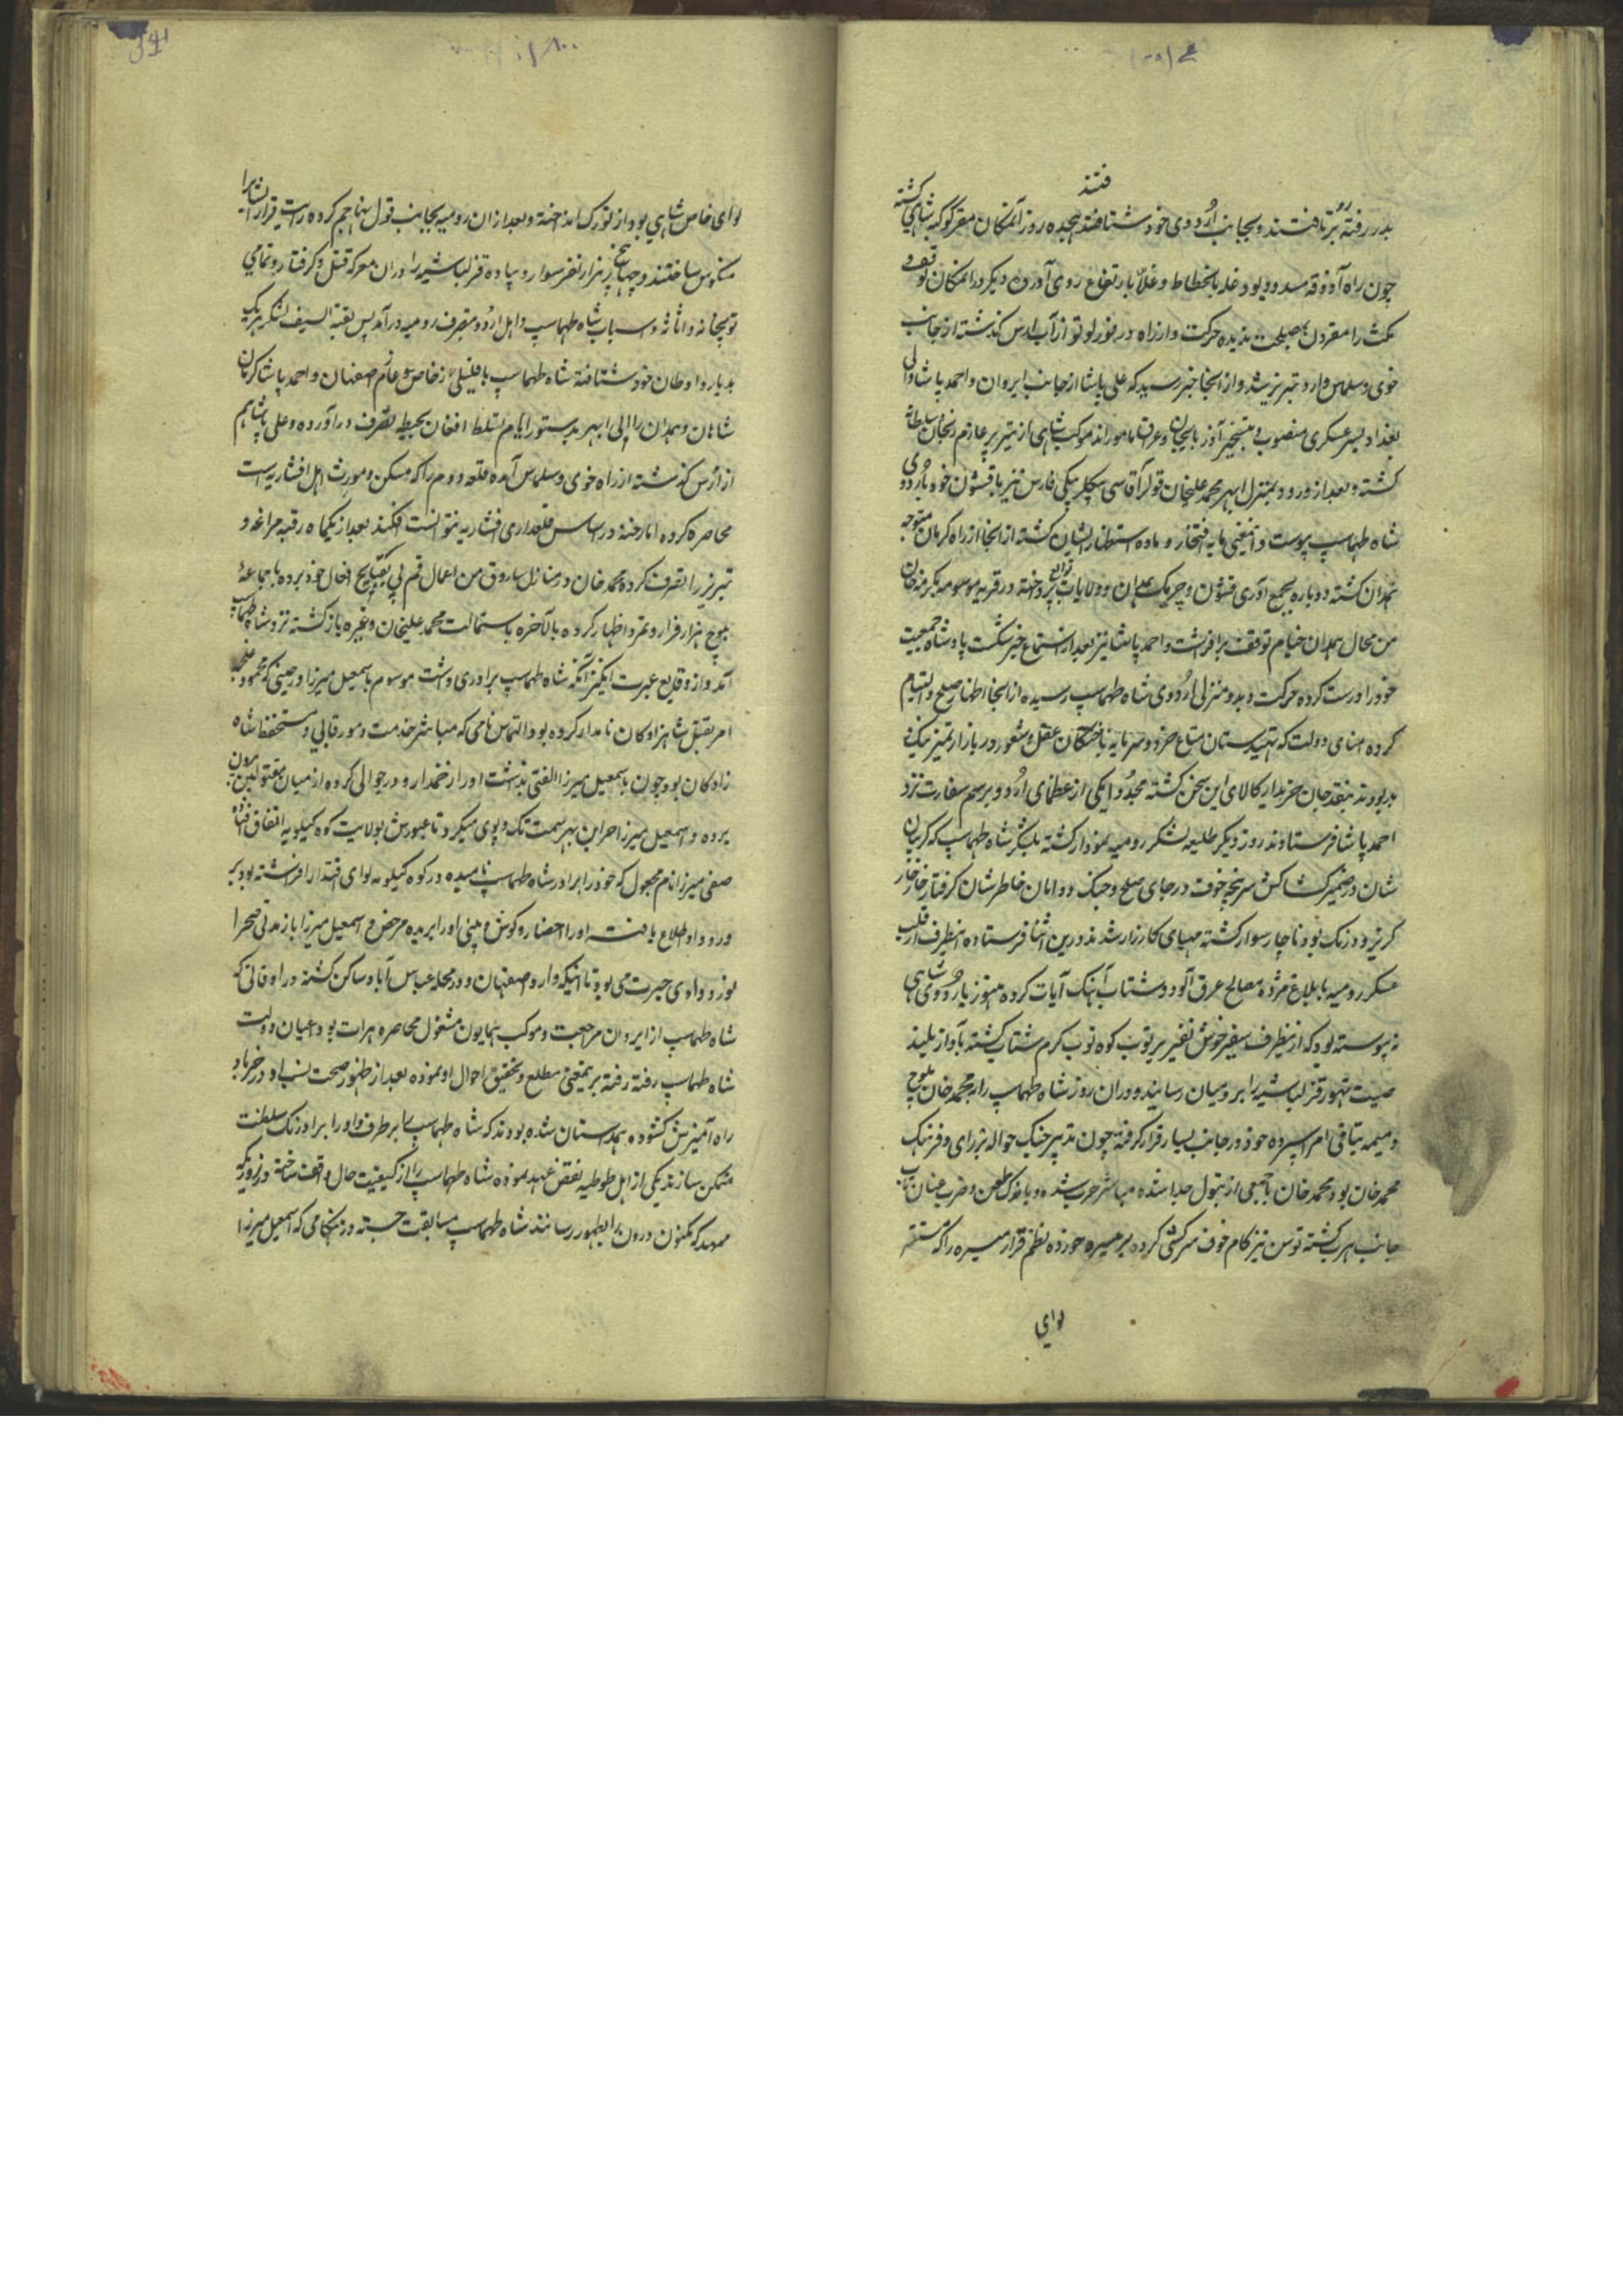 فتند
بدر رفته بر تافتند و بجانب اردوی خود شتافتند هیجده روز آنمکان مقر کوکبه شاهی کشته
چون راه آذوقه مسدود بود غله بانحطاط و غلا بارتفاع روی آورد دیکر در انمکان توقف و
مکث را مقرون بمصلحت ندیده حرکت و از راه از آب ارس کذشته از جانب
خوی و سلماس وارد تبریز شد و از انجا خبر رسید که علی پاشا از جانب ایروان و احمد پاشا والی
بغداد بسر عسکری منصوب و بتسخیر آذربایجان و عراق مامورند موکب شاهی از تبریز عازم زنجان و سلطانیه
کشته و بعد از ورود بمنزل ابهر محمد علیخان قوللر آقاسی بیکلر بیکی فارس نیز با قشون خود باردوی
شاه طهماسب پیوست و اینمعنی مایه افتخار و ماده استظهار ایشان کشته از انجا از راه کرمان متوجه
همدان کشته دوباره بجمع آوری قشون و چریک همدان و ولایات توابع پرداخته در قریه موسومه بکرد خان
من محال همدان خیام توقف برافراشت و احمد پاشا نیز بعد از استماع خبر شکست پادشاه جمعیت
خود را درست کرده حرکت و بدو منزلی اردوی شاه طهماسب رسیده از انجا اظهار صلح و التیام
کرده امنای دولت که تهیدستان متاع خرد و سرمایه باختکان عقل و شعور در بازار تمیز نیک و
بد بودند بنقد جان خریدار کالای این سخن کشته مجددا یکی از عظمای اردو برسم سفارت نزد
احمد پاشا فرستادند روز دیکر طلیعه لشکر رومیه نمودار کشته لشکر شاه طهماسب که کریبان
شان در ضمیر کشاکش سرپنجه خوف در جای صلح و جنک و دامان خاطرشان کرفتار خار خار
کریز و درنک بود ناچار سوار کشته مهیای کارزار شدند درین اثنا فرستاده اینطرف از قلب
عسکر رومیه با بلاغ مژده مصالح عرق آلود و شتاب آهنک ایاب کرده هنوز باردوی شاهی
نپیوسته بود که از اینطرف سفیر خوش نفیر بر توپ کوه توب کرم شتاب کشته بآواز بلند
صیت تهور قزلباشیه را برومیان رسانید و دران روز شاه طهماسب را بمحمد خان بلوچ
و میمنه بباقی امرا سپرده خود در جانب یسار قرار کرفته چون تدبیر جنک حواله برای و فرهنک
محمد خان بود محمد خان با جمعی از تیول جدا شده مباشر حرب شده و باندک طعن و ضرب عنان تاب
جانب هرب کشته توسن تیز کام خوف سرکشی کرده بر میسره خورده نظم قرار میسره را که مستقر
لوای
لوای خاص شاهی بود از تورک انداخته و بعد از ان رومیه بجانب قول تهاجم کرده رایت قرار ایشانرا
منکوس ساختند و چهار پنج هزار نفر سوار و پیاده قزلباشیه را دران معرکه قتل و کرفتار و تمامی
توپخانه و اثاثه و اسباب شاه طهماسب و اهل اردو بتصرف رومیه درآمد پس بقیة السیف لشکر هریک
بدیار و اوطان خود شتافته شاه طهماسب با قلیلی از خاص عازم اصفهان و احمد پاشا کرمان
شاهان و همدان را الی ابهر بدستور ایام تسلط افغان بحیطه تصرف درآورده و علی پاشا هم
از ارس کذشته از راه خوی و سلماس آمده قلعه دومدم را که مسکن و مورث اهل افشاریه است
محاصره کرده اما رخنه در اساس قلعداری افشاریه نتوانست فکند بعد از یکماه رقبه مراغه و
تبریز را تصرف کرده محمد خان در منازل ساروق من اعمال قم پی بقبایح افعال خود برده با جماعهٔ
بلوچ هزار فرار و تمرد اظهار کرده بالاخره باستمالت محمد علیخان و غیره باز کشته نزد شاه طهماسب
آمد و از وقایع عبرت انکیز آنکه شاه طهماسب برادری داشت موسوم باسمعیل میرزا در حینی که محمود غلجه
امر بقتل شاهزادکان نامدار کرده بود التماس نامی که مباشر خدمت و مور قاپی و مستحفظ شاه
زادکان بود چون باسمعیل میرزا الفتی داشت او را زخمدار و در جوالی کرده از میان مقتولین بیرون
برده و اسمعیل میرزا حیران بهر سمت تک و پوی میکرد تا عبورش بولایت کوه کیلویه اتفاق افتاده
صفی میرزا نام مجهول که خود را برادر شاه طهماسب نامیده در کوه کیلویه لوای اقتدار افراشته بود بر
ورود او اطلاع یافته او را احضار و کوش و بینی او را بریده مرخص و اسمعیل میرزا باز مدتی صحرا
نورد وادی حیرت می بود تا اینکه وارد اصفهان و در محله عباس آباد ساکن کشته در اوقاتی که
شاه طهماسب از ایروان مراجعت و موکب همایون مشغول محاصره هرات بود اعیان دولت
شاه طهماسب رفته رفته بر اینمعنی مطلع و تحقیق احوال او نموده بعد از ظهور صحت نسب او در خرباد
راه آمیزش کشوده همداستان شده بودند که شاه طهماسب را برطرف و او را بر اورنک سلطنت
متمکن سازند یکی از اهل طوطیه نقض عهد نموده شاه طهماسب را از کیفیت حال واقف ساخته و روزیکه
ممهد که مکنون درون را بظهور رسانند شاه طهماسب مسابقت جسته در هنکامی که اسمعیل میرزا